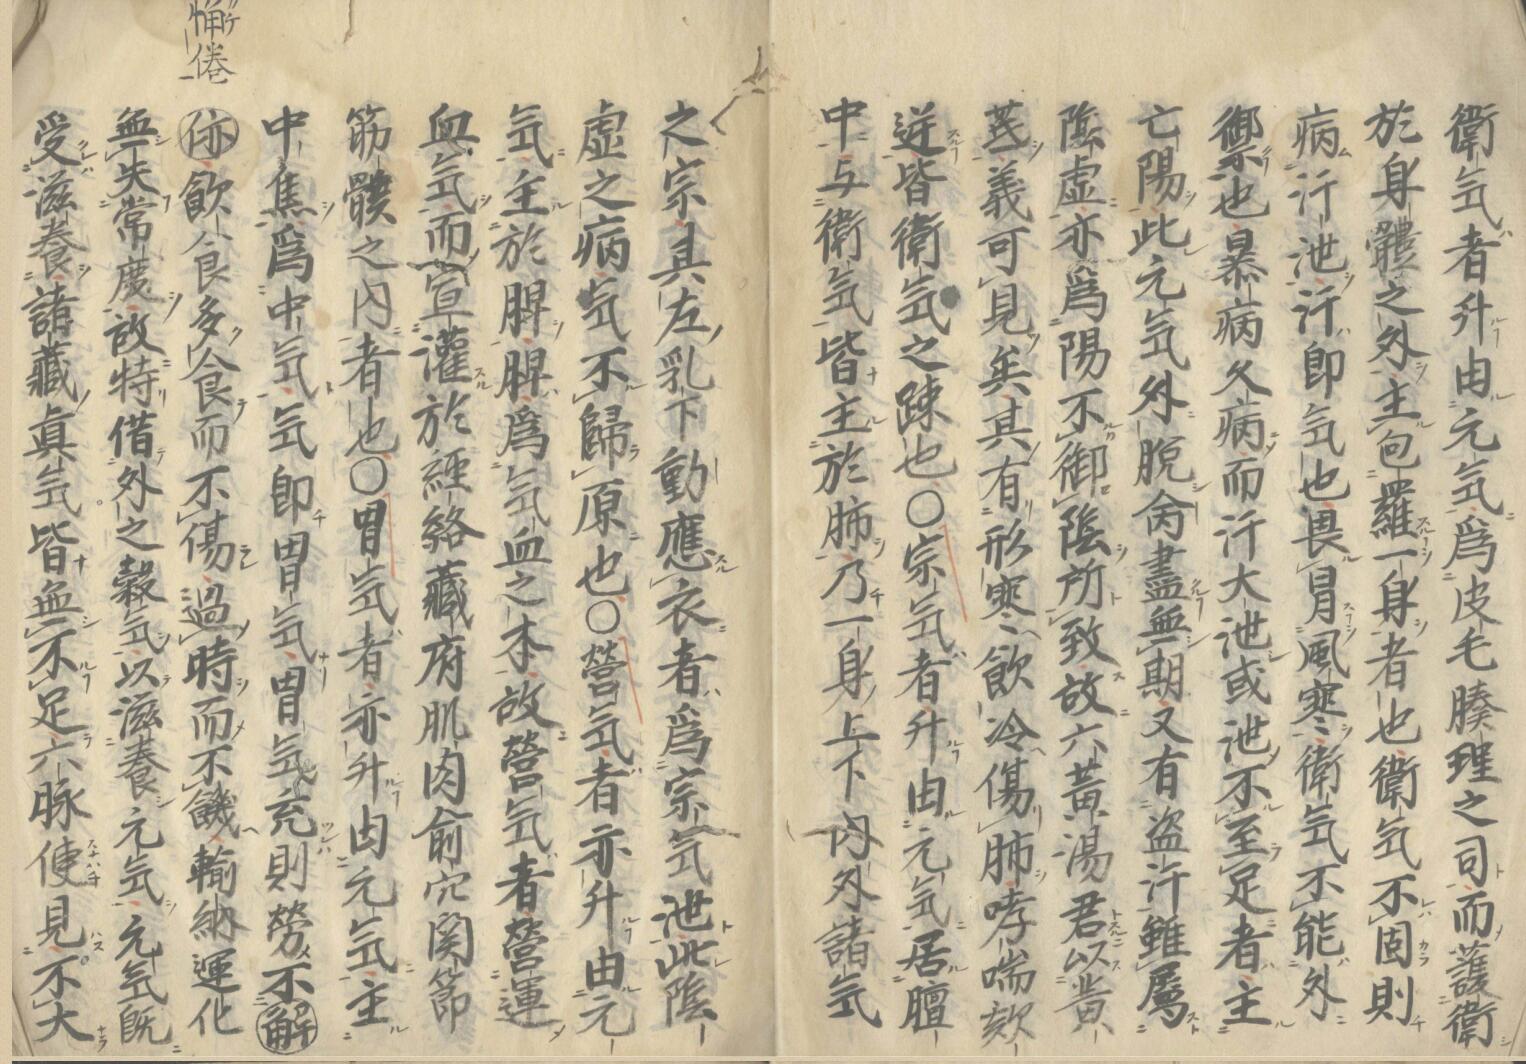 衛気者升由元気爲皮毛腠理之司而護衛
於身體之外主包羅一身者也衛気不固則
病汗泄汗即気也畏冒風寒衛気不能外
禦也暴病久病而汗大泄或泄不至足者主
亡陽此元気外脫肏盡無期又有盗汗雖屬
陰虚亦爲陽不御陰所致故六黃湯君以黃
茋義可見矣其有形寒飲冷傷肺哮喘欬
逆皆衛気之踈也〇宗気者升由元気居膻
中与衛気皆主於肺乃一身上下内外諸気
之宗具左乳下動應衣者爲宗気泄此陰
虚之病気不歸原也〇營気者亦升由元
気主於脾脾爲気血之本故營気者營運
血気而宣灌於經絡藏府肌肉俞穴関節
筋髏之内者也〇胃気者亦升由元気主
中焦爲中気気即胃気胃気充則勞不解
㑊飲食多食而不傷過時而不饑輸納運化
無失常度故特借外之穀気以滋養元気元気既
受滋養諸藏眞気皆無不足六脉使見不大
㑊倦